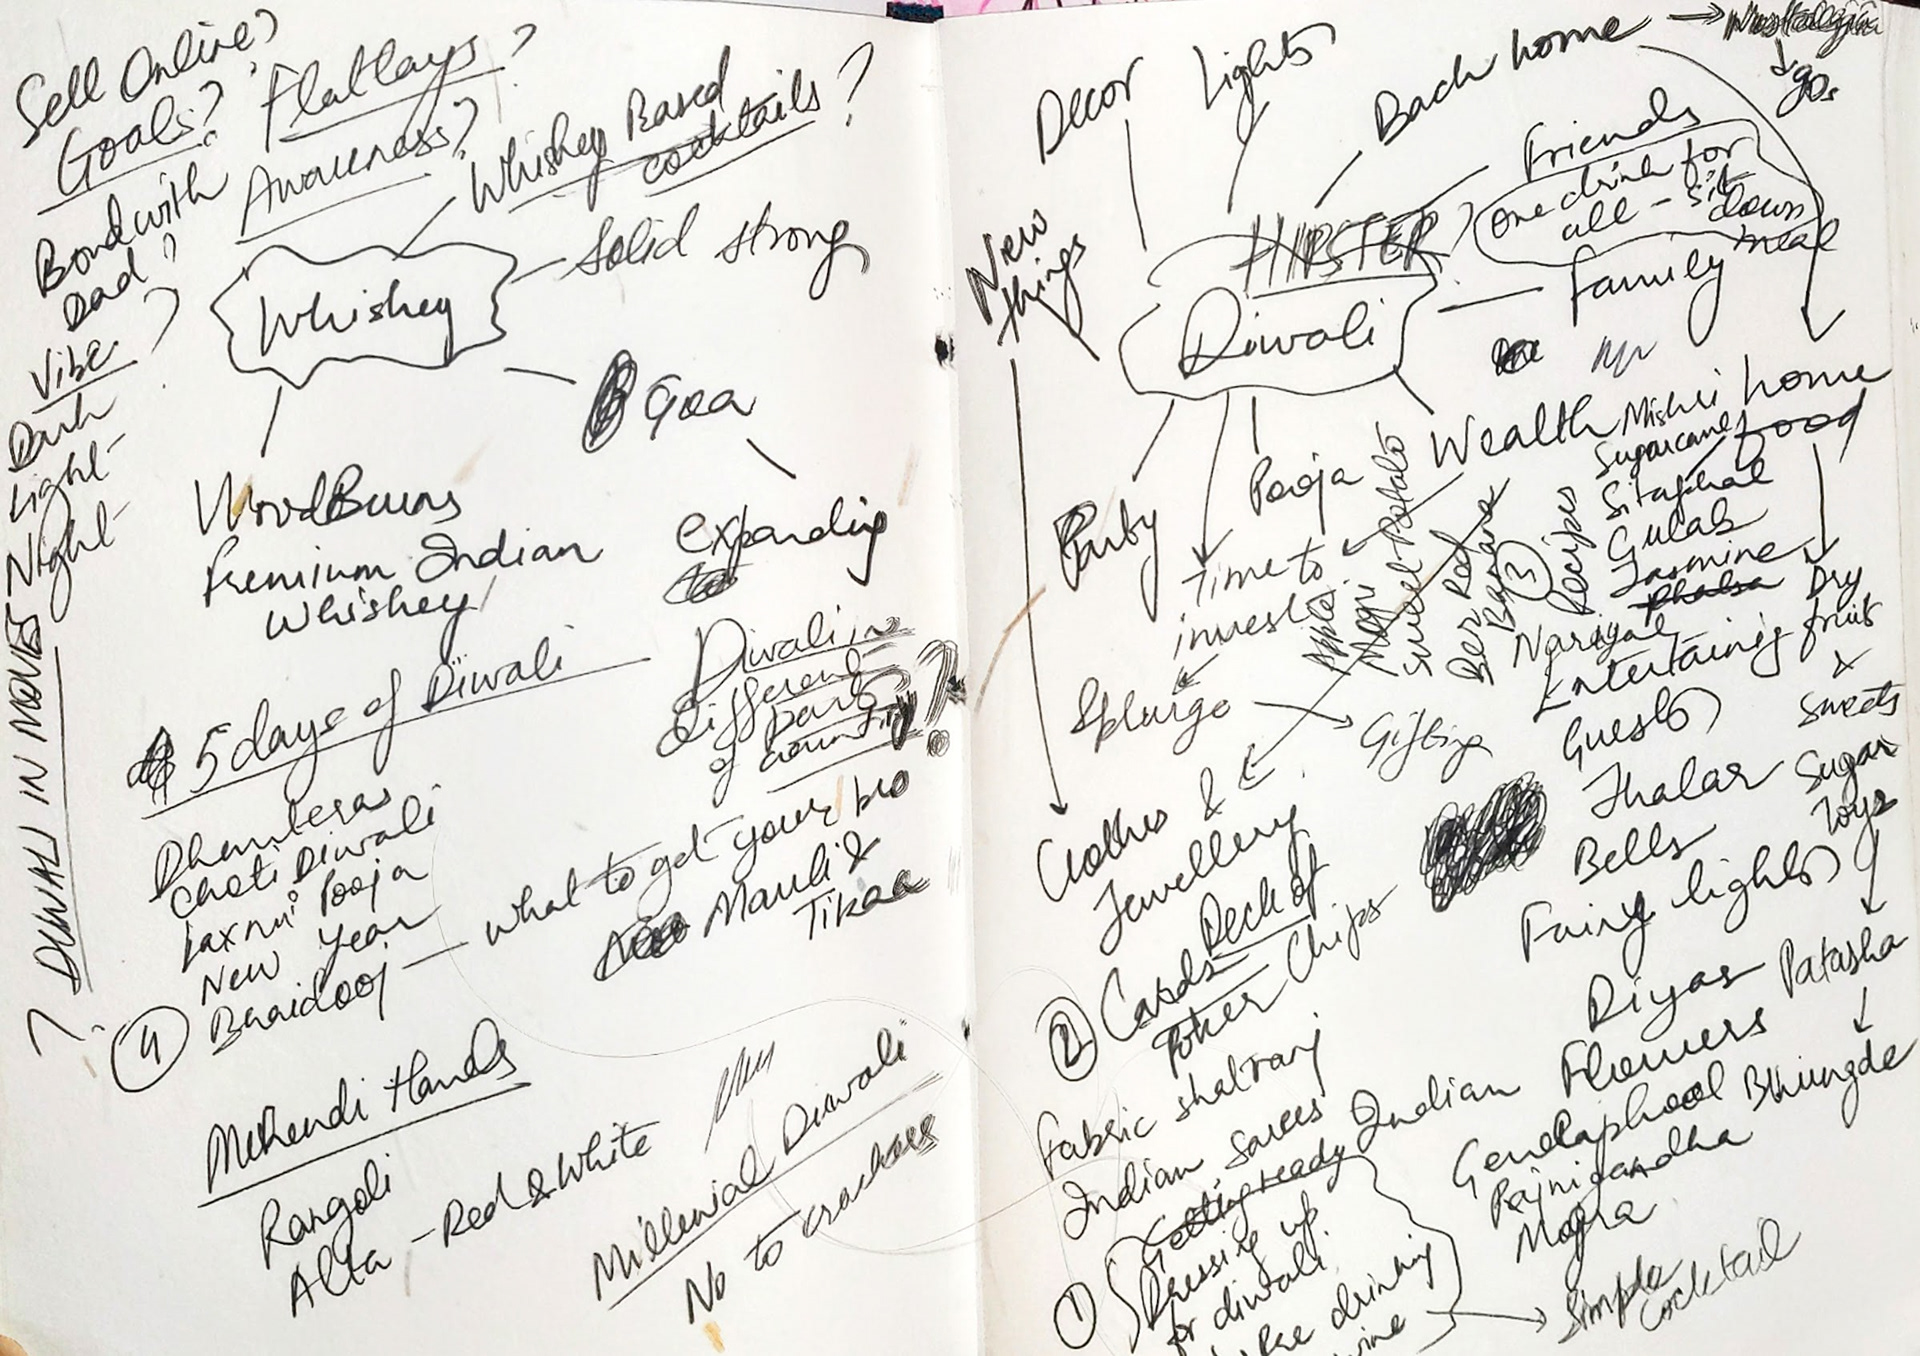 Sell Online?
Goals?
Flatlays?
Awareness?
Bond with
Dad?
Vibe?
Dark
Light
Night
? DIWALI IN MOVIES
Whiskey Based
cocktails?
Solid strong
Whiskey
Goa
expanding
WoodBurns
Premium Indian
Whiskey
5 days of Diwali
Dhanteras
Choti Diwali
Laxmi Pooja
New Year
Bhaidooj
4
Diwali in
different
parts
of country?
what to get your bro
Mauli &
Tikaa
Mehendi Hands
Rangoli
Alta - Red & White
Millenial Diwali
No to crackers
Decor
Lights
Back home
Nostalgia
90s
Friends
One drink for
all - sit
down
meal
HIPSTER?
Diwali
Family
New
things
home
food
Wealth
Mishri
Sugarcane
Sitaphal
Gulab
Jasmine
Phalsa
Nariyal
Dry
fruit
&
Sweets
Sugar
Toys
Patasha
Bhungde
Party
Pooja
Time to
invest
Splurge
Gifting
Apple
Sweet Potato
Ber Red
Banana
3
Recipes
Entertaining
Guests
Jhalar
Bells
Fairy lights
Diyas
Indian Flowers
Gendaphool
Rajnigandha
Mogra
Clothes &
Jewellery
2
Deck of
Cards
Poker Chips
Fabric shatranj
Indian sarees
1
Getting ready
Dressing up
for diwali
drinking
wine
Simple
Cocktail